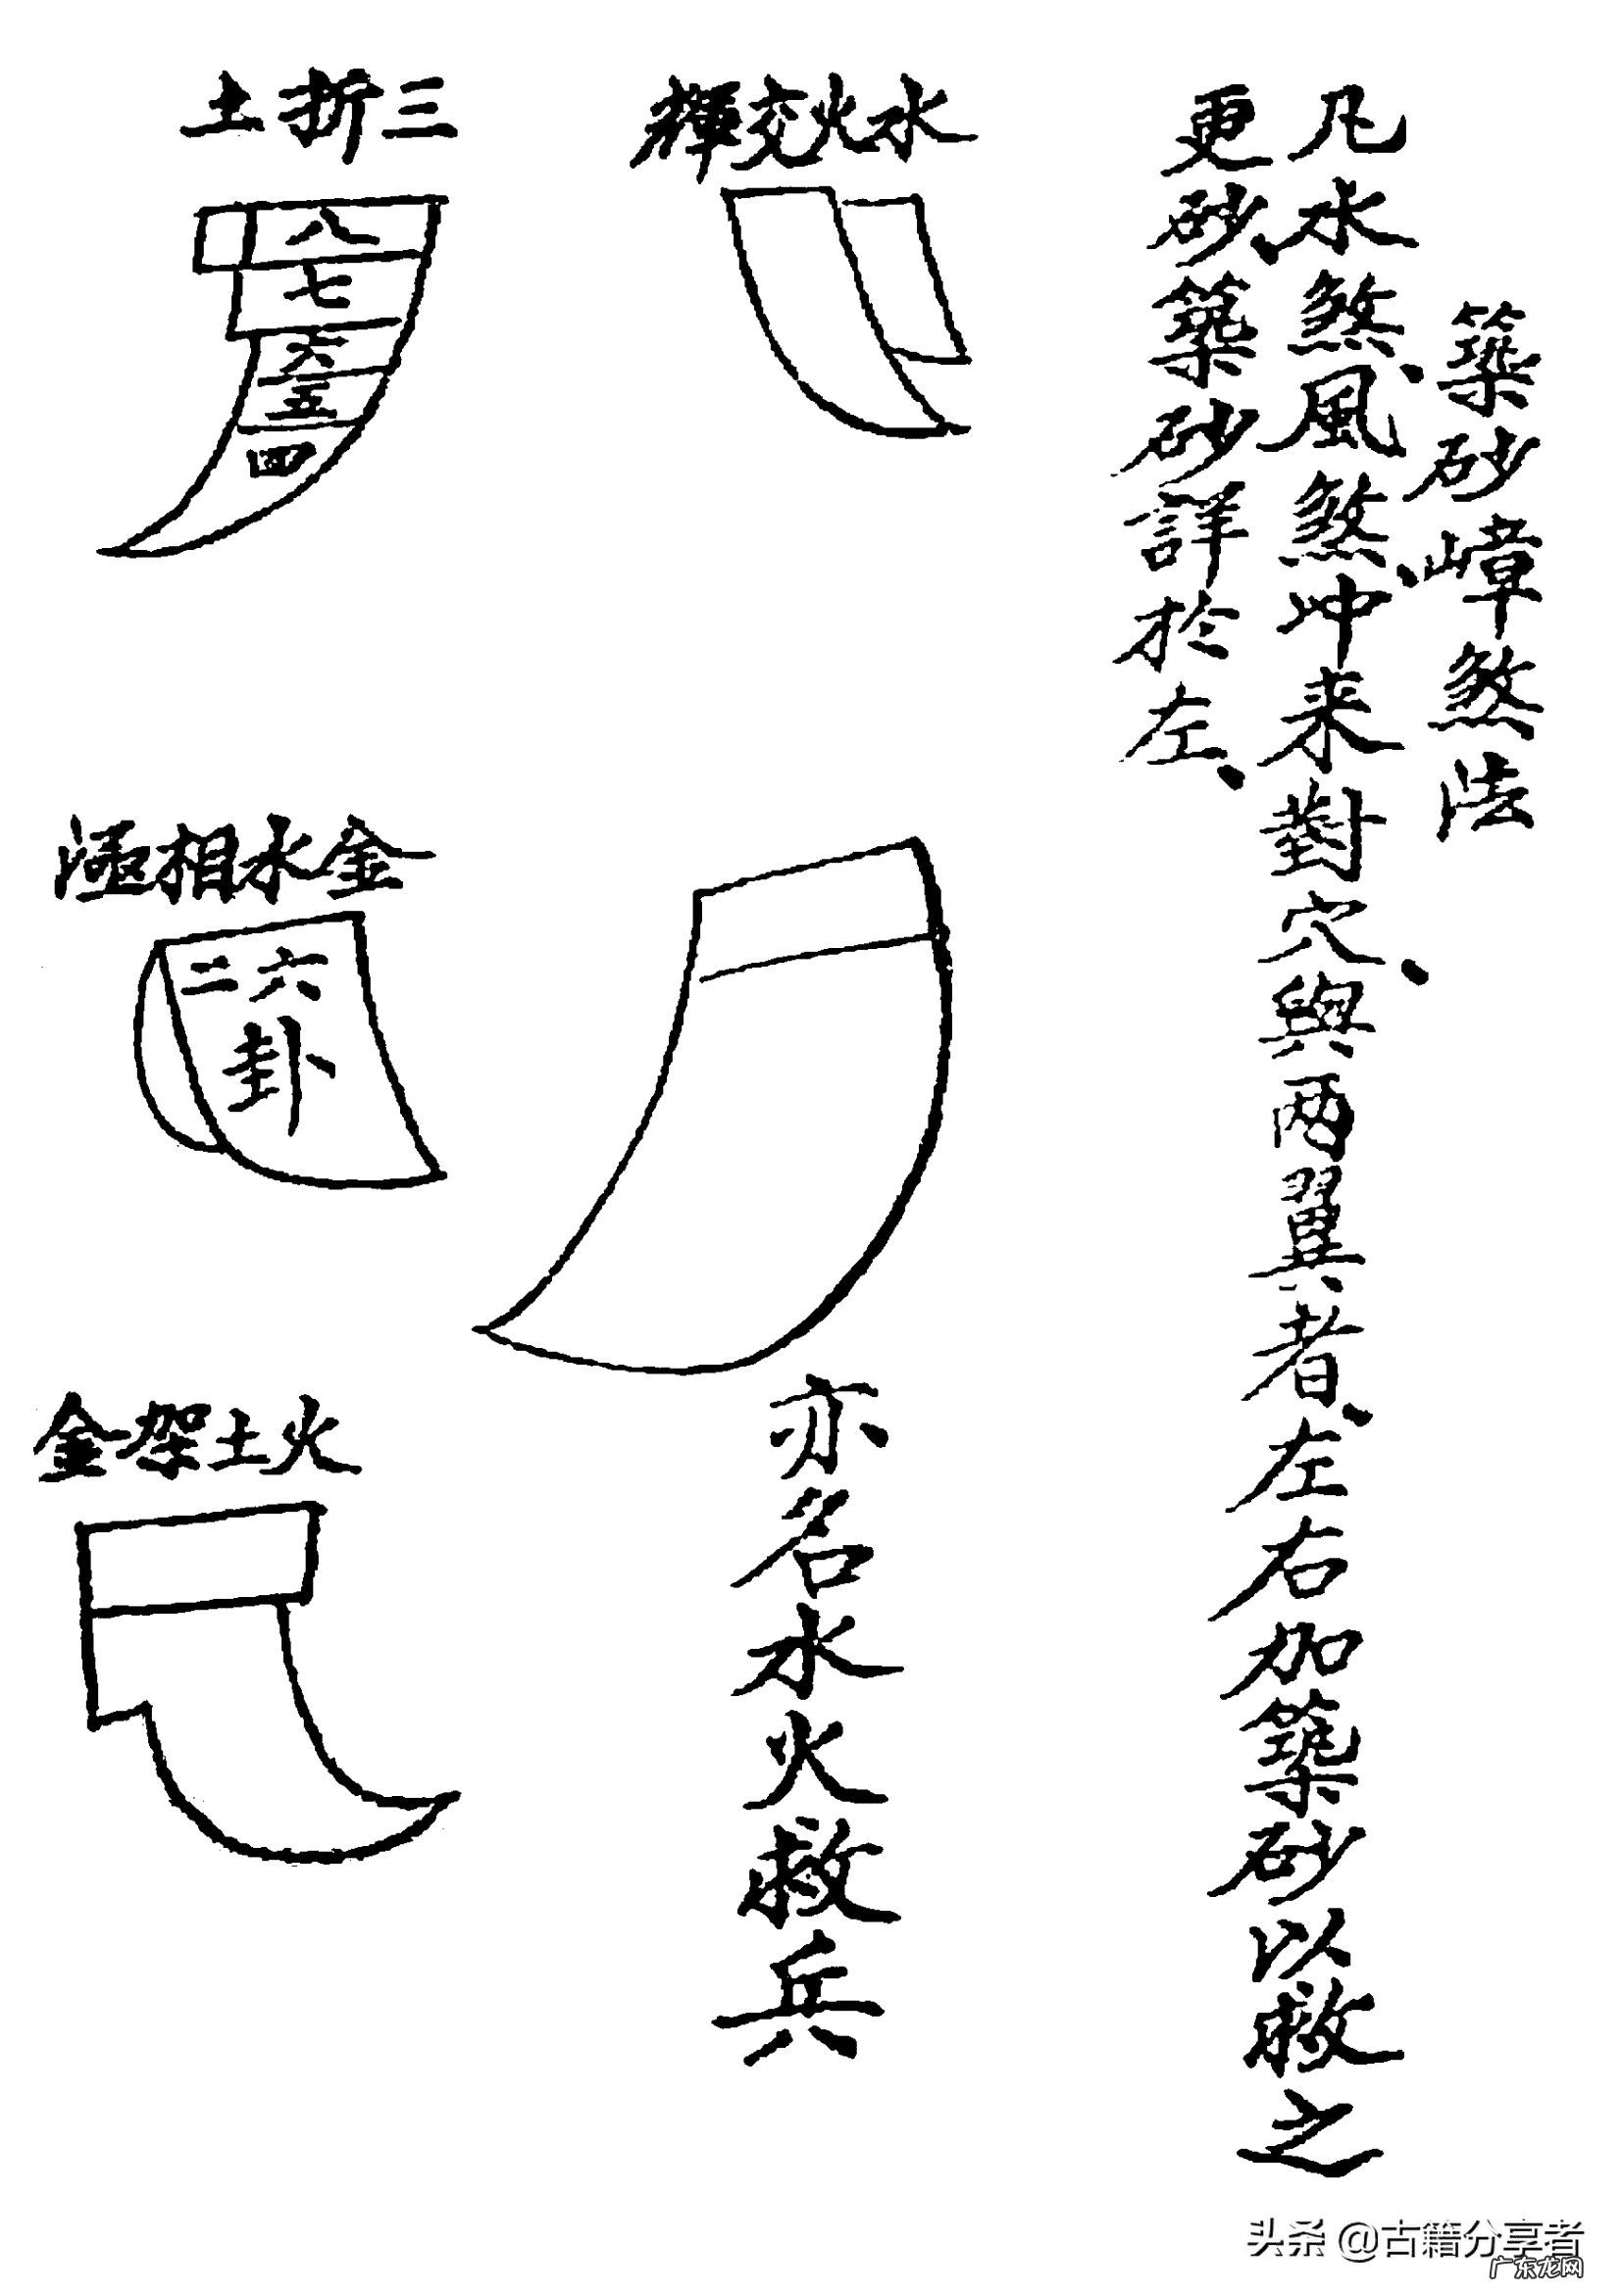 築砂嶂煞法
凡水煞、風煞、冲来對穴、與兩翼者、左右加築砂以救之
更砂、築砂詳於左、
水火交輝
亦名水火救兵
三折土
八
七
六
五
四
金水相涵
六二
卦
火土架金
头条 @古籍分享者
广东龙网